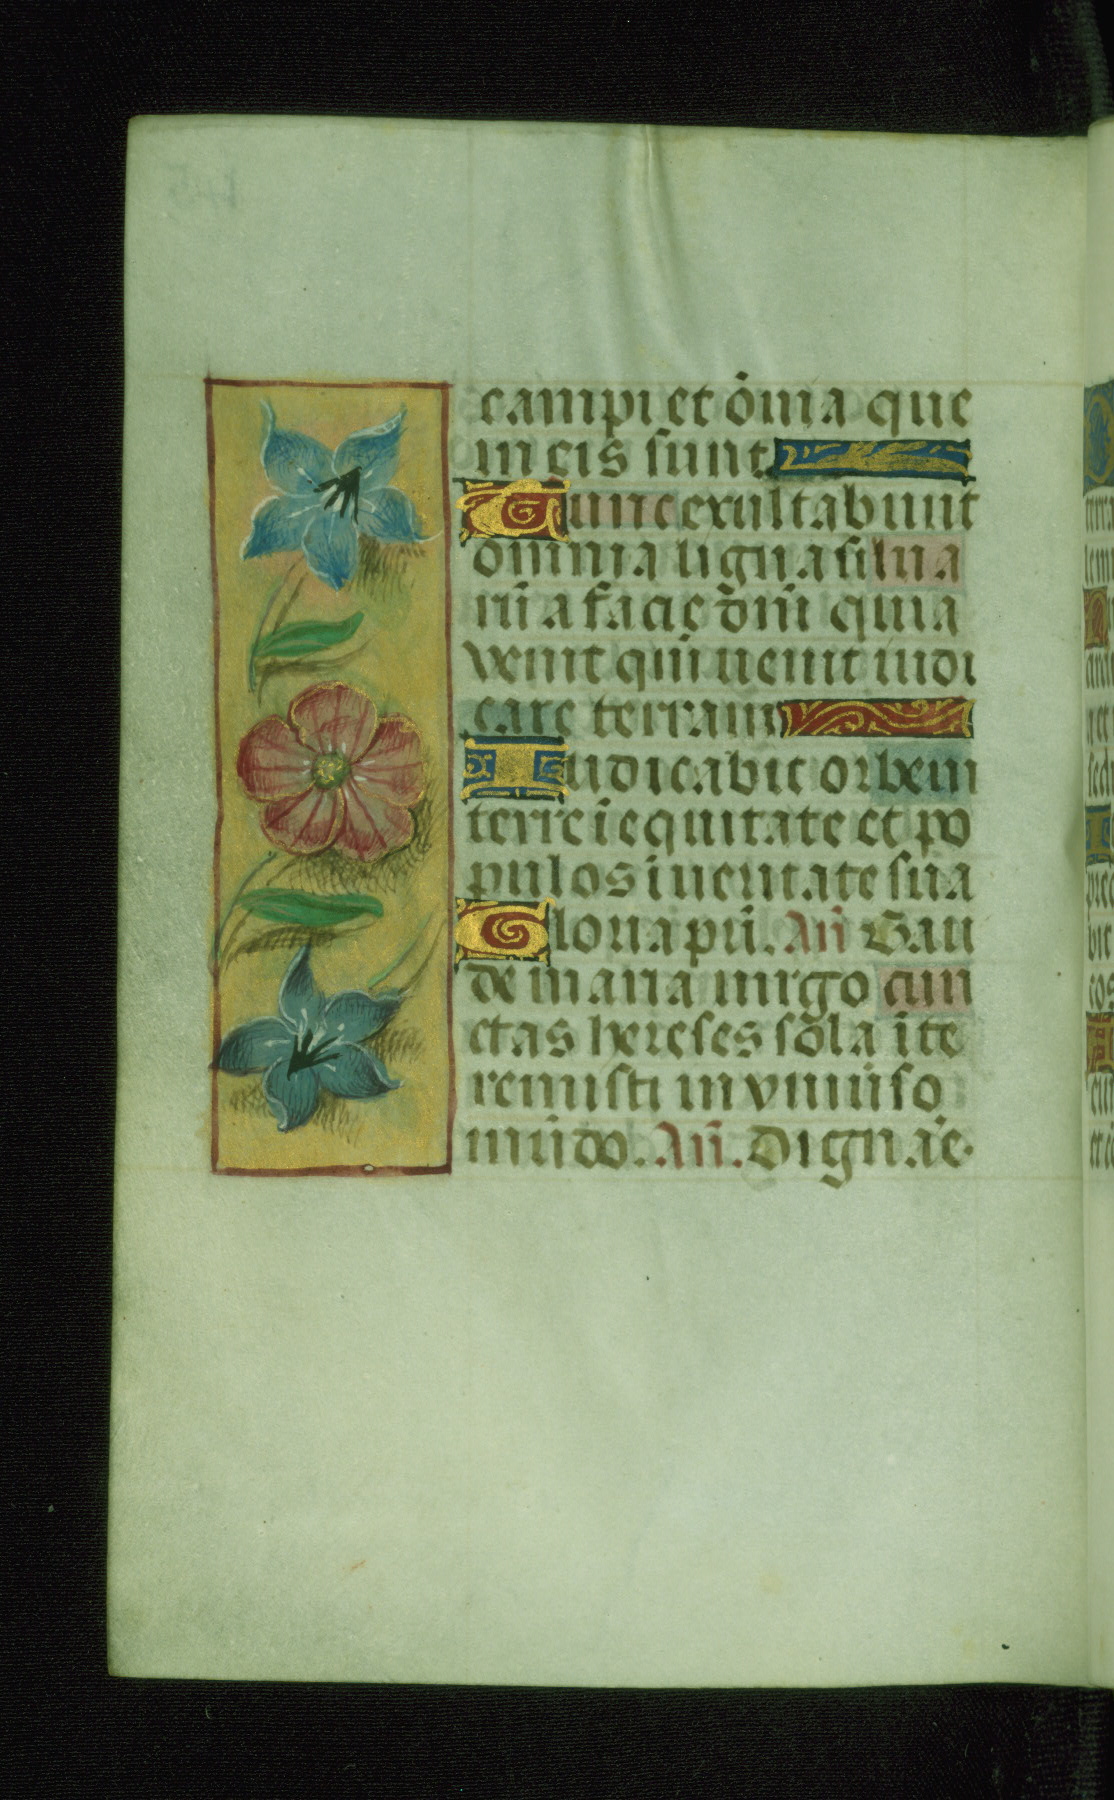 campi et ōnia que
in eis sunt
Tunc exultabunt
omnia ligna silua
rū a facie dn̄i quia
venit qm̄ uenit iudi
care terram
Iudicabit orbem
terre ī equitate et po
pulos ī ueritate sua
Gloria pr̄i. Añ Gau
de maria uirgo cun
ctas hereses sōla īte
remisti in vniūso
mūdo. Añ. Dignāe.